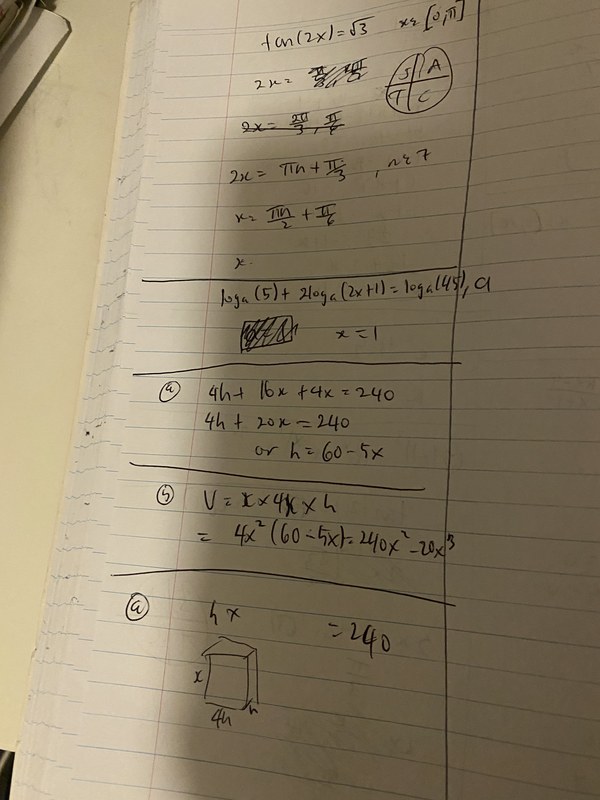 tan(2x)=√3 x∈[0,π]
2x=
S A
T C
2x= 2π/3, π/6
2x= πn+π/3, n∈Z
x= πn/2 + π/6
x
loga(5)+2loga(2x+1)=loga(45), a
x=1
(a) 4h+ 16x +4x=240
4h+ 20x=240
or h=60-5x
(b) V= x×4x×h
= 4x²(60-5x)=240x²-20x³
(a) hx =240
x
4h h